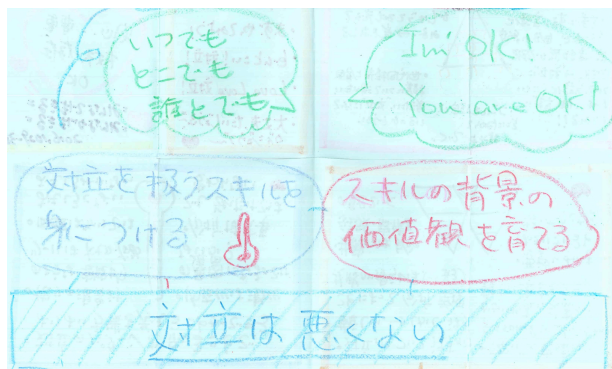 いつでも
どこでも
誰とでも
I'm OK!
You are OK!
対立を扱うスキルを
身につける
スキルの背景の
価値観を育てる
対立は悪くない